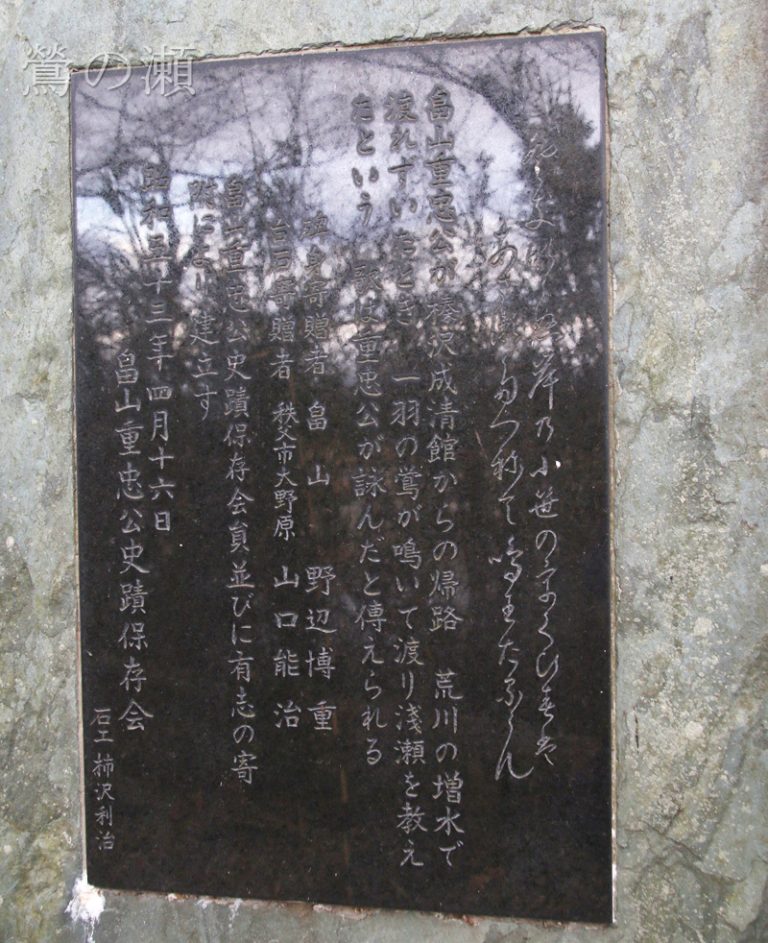 鶯の瀬
岸乃小笹の
鳴
畠山重忠公が榛沢成清館からの帰路 荒川の増水で
渡れずいたとき 一羽の鶯が鳴いて渡り浅瀬を教え
たという 歌は重忠公が詠んだと傳えられる
碑身寄贈者 畠山 野辺博重
台石寄贈者 秩父市大野原 山口能治
畠山重忠公史蹟保存会員並びに有志の寄
附により建立す
昭和五十三年四月十六日
畠山重忠公史蹟保存会
石工 柿沢利治